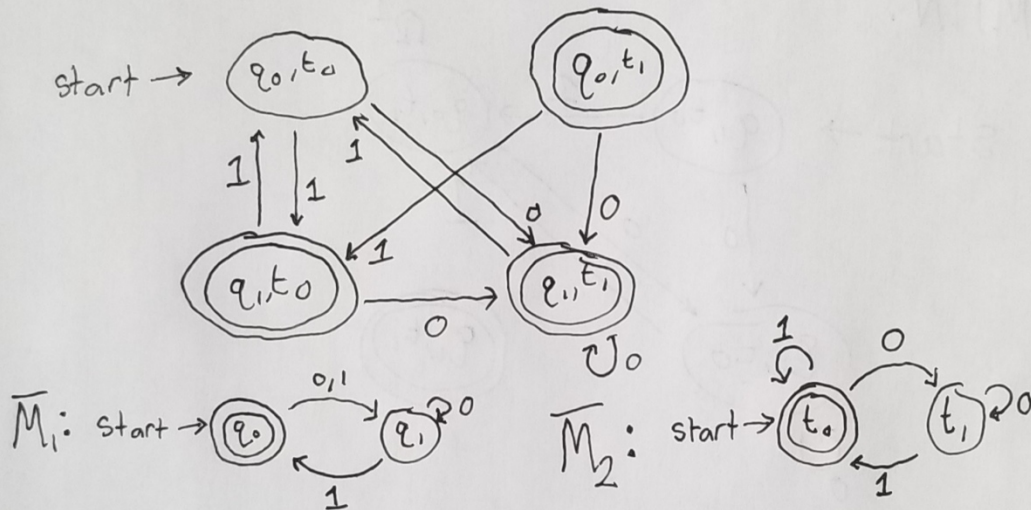 start → q₀,t₀
q₀,t₁
1
1
1
0
0
1
q₁,t₀
q₁,t₁
0
0
M̅₁: start → q₀
0,1
q₁
0
1
M̅₂: start → t₀
1
0
t₁
0
1